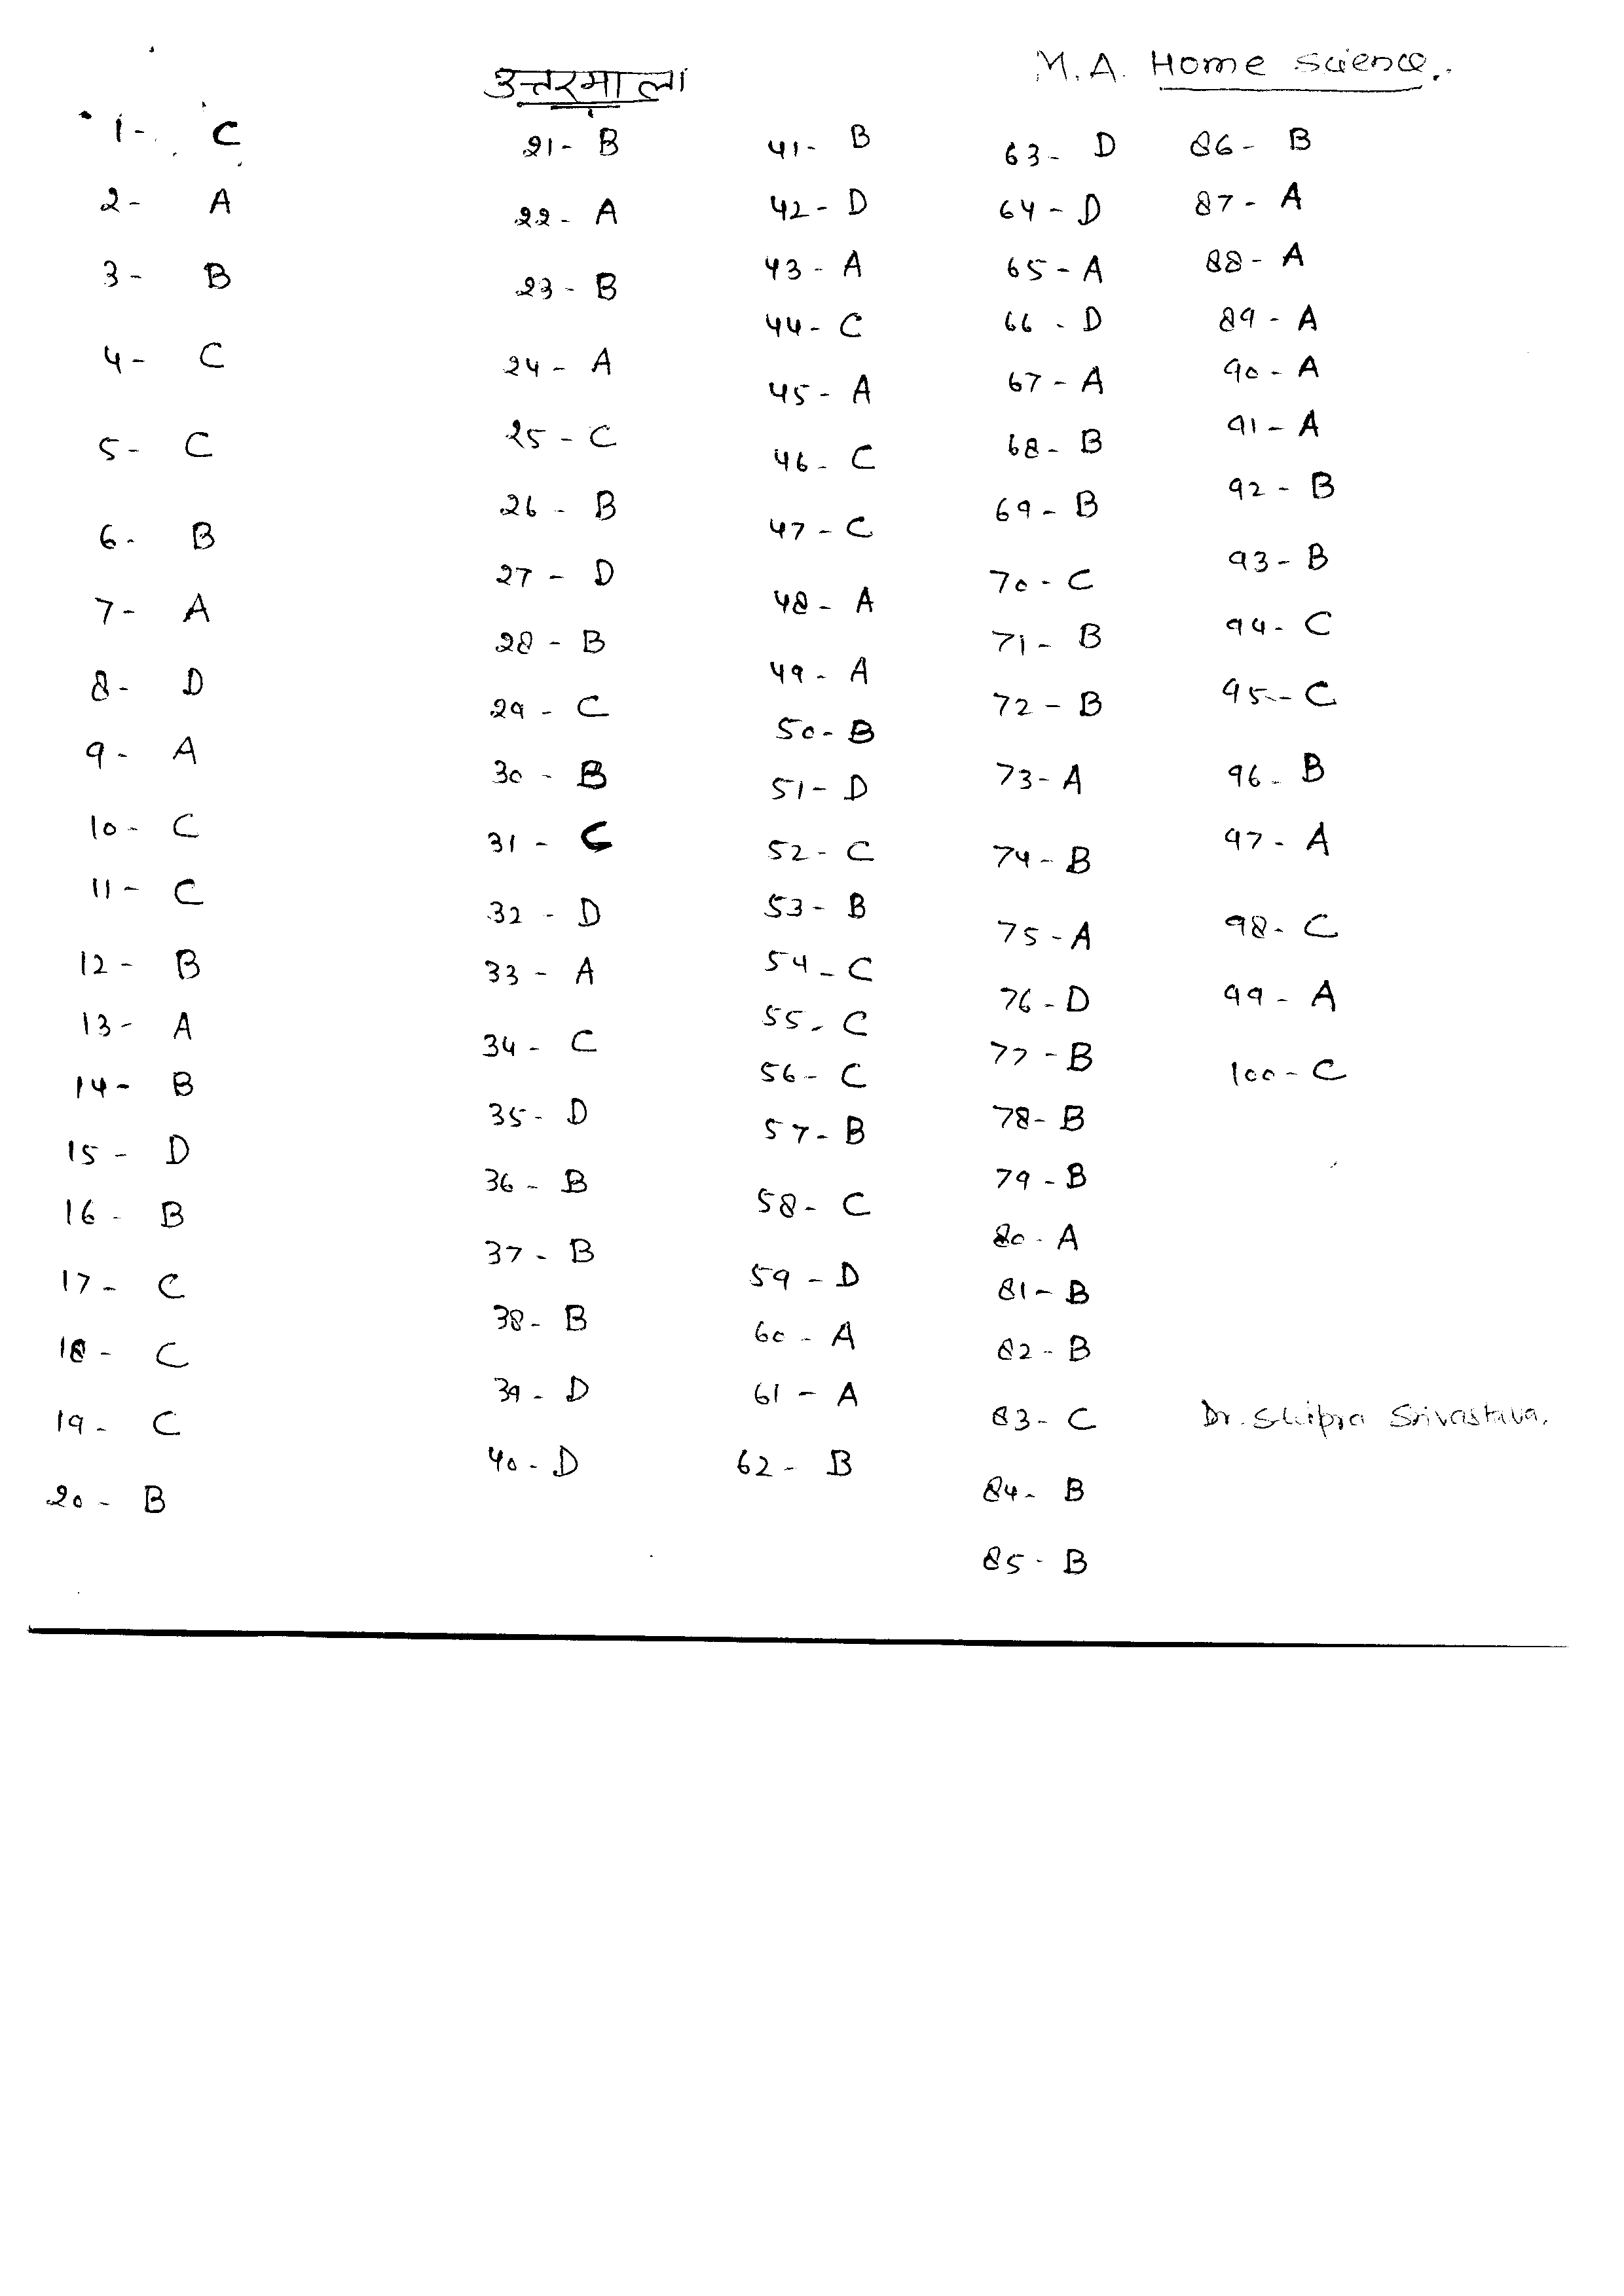 उत्तरमाला
M.A. Home Science.
1- C
2- A
3- B
4- C
5- C
6- B
7- A
8- D
9- A
10- C
11- C
12- B
13- A
14- B
15- D
16- B
17- C
18- C
19- C
20- B
21- B
22- A
23- B
24- A
25- C
26- B
27- D
28- B
29- C
30- B
31- C
32- D
33- A
34- C
35- D
36- B
37- B
38- B
39- D
40- D
41- B
42- D
43- A
44- C
45- A
46- C
47- C
48- A
49- A
50- B
51- D
52- C
53- B
54- C
55- C
56- C
57- B
58- C
59- D
60- A
61- A
62- B
63- D
64- D
65- A
66- D
67- A
68- B
69- B
70- C
71- B
72- B
73- A
74- B
75- A
76- D
77- B
78- B
79- B
80- A
81- B
82- B
83- C
84- B
85- B
86- B
87- A
88- A
89- A
90- A
91- A
92- B
93- B
94- C
95- C
96- B
97- A
98- C
99- A
100- C
Dr. Shipra Srivastava.